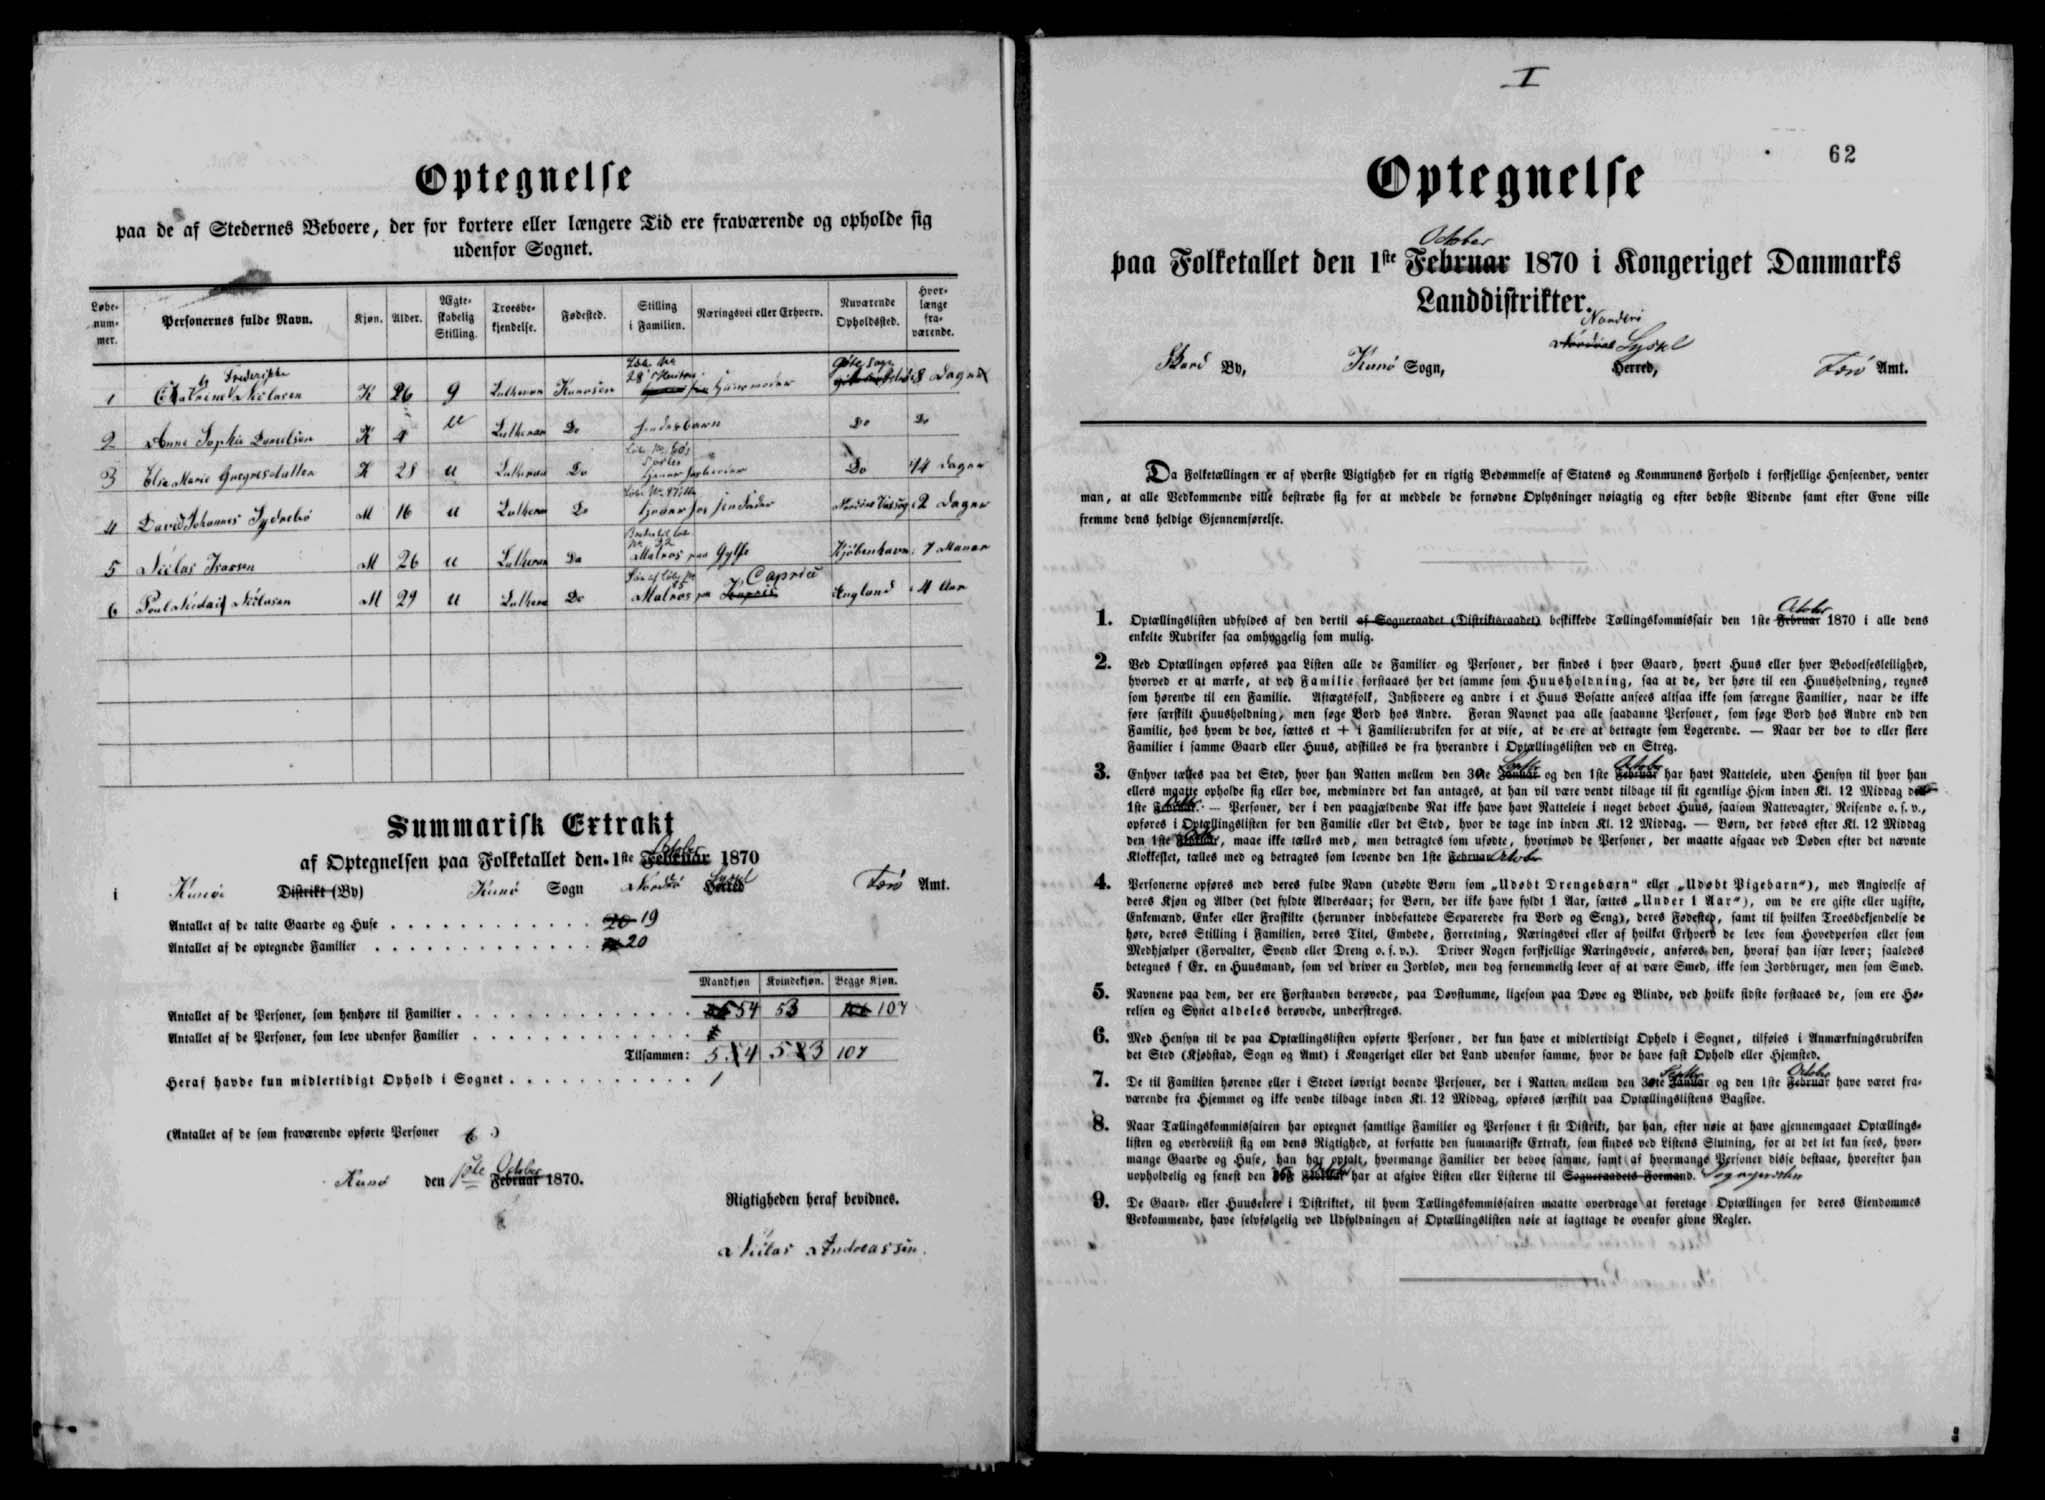 Optegnelse
paa de af Stedernes Beboere, der for kortere eller længere Tid ere fraværende og opholde sig
udenfor Sognet.
Løbe-nummer. Personernes fulde Navn. Kjøn. Alder. Ægteskabelig Stilling. Troesbekjendelse. Fødested. Stilling i Familien. Næringsvei eller Erhverv. Nuværende Opholdssted. Hvorlænge fraværende.
Frederikke
1 Nielasen K 26 g Lutheran Kunosen Huusmoder 8 Dage
2 Anne Sophie Danielsen K 4 u Lutheran Do Do Do
3 Else Marie K 28 u Lutheran Do Do 14 Dage
4 David Johannes M 16 u Luthera Do 2 Dage
5 Niclas M 26 u Lutheran Do Matros paa Gylfe Kjøbenhavn 7 Maaner
6 Poul Nicolai Niclasen M 29 u Luthera Do Matros paa Capricé England 4 Aar
Summarisk Extrakt
October
af Optegnelsen paa Folketallet den 1ste Februar 1870
i Kunøe Distrikt (By) Kunø Sogn Norderø Syssel Herred Færø Amt.
Antallet af de talte Gaarde og Huse 20 19
Antallet af de optegnede Familier 20
Mandkjøn Kvindekjøn. Begge Kjøn.
Antallet af de Personer, som henhøre til Familier 54 53 107
Antallet af de Personer, som leve udenfor Familier
Tilsammen: 54 53 107
Heraf havde kun midlertidigt Ophold i Sognet 1
(Antallet af de som fraværende opførte Personer 6 )
Kunø den 1ste October Februar 1870.
Rigtigheden heraf bevidnes.
Niclas Andreassen.
I
62
Optegnelse
October
paa Folketallet den 1ste Februar 1870 i Kongeriget Danmarks
Landdistrikter.
Norderø
Skard By, Kunø Sogn, Syssel Herred, Færø Amt.
Da Folketællingen er af yderste Vigtighed for en rigtig Bedømmelse af Statens og Kommunens Forhold i forskjellige Henseender, venter
man, at alle Vedkommende ville bestræbe sig for at meddele de fornødne Oplysninger nøiagtig og efter bedste Vidende samt efter Evne ville
fremme dens heldige Gjennemførelse.
1. Optællingslisten udfyldes af den dertil af Sogneraadet (Distriktsraadet) beskikkede Tællingskommissair den 1ste October Februar 1870 i alle dens
enkelte Rubriker saa omhyggelig som mulig.
2. Ved Optællingen opføres paa Listen alle de Familier og Personer, der findes i hver Gaard, hvert Huus eller hver Beboelsesleilighed,
hvorved er at mærke, at ved Familie forstaaes her det samme som Huusholdning, saa at de, der høre til een Huusholdning, regnes
som hørende til een Familie. Aftægtsfolk, Indsiddere og andre i et Huus Bosatte ansees altsaa ikke som særegne Familier, naar de ikke
føre særskilt Huusholdning, men søge Bord hos Andre. Foran Navnet paa alle saadanne Personer, som søge Bord hos Andre end den
Familie, hos hvem de boe, sættes et + i Familierubriken for at vise, at de ere at betragte som Logerende. — Naar der boe to eller flere
Familier i samme Gaard eller Huus, adskilles de fra hverandre i Optællingslisten ved en Streg.
3. Enhver tælles paa det Sted, hvor han Natten mellem den 30te Septbr Januar og den 1ste October Februar har havt Natteleie, uden Hensyn til hvor han
ellers maatte opholde sig eller boe, medmindre det kan antages, at han vil være vendt tilbage til sit egentlige Hjem inden Kl. 12 Middag den
1ste Octbr Februar. — Personer, der i den paagjældende Nat ikke have havt Natteleie i noget beboet Huus, saasom Nattevagter, Reisende o. s. v.,
opføres i Optællingslisten for den Familie eller det Sted, hvor de tage ind inden Kl. 12 Middag. — Børn, der fødes efter Kl. 12 Middag
den 1ste Februar, maae ikke tælles med, men betragtes som ufødte, hvorimod de Personer, der maatte afgaae ved Døden efter det nævnte
Klokkeslet, tælles med og betragtes som levende den 1ste Februar October
4. Personerne opføres med deres fulde Navn (udøbte Børn som „Udøbt Drengebarn" eller „Udøbt Pigebarn"), med Angivelse af
deres Kjøn og Alder (det fyldte Aldersaar; for Børn, der ikke have fyldt 1 Aar, sættes „Under 1 Aar"), om de ere gifte eller ugifte,
Enkemænd, Enker eller Fraskilte (herunder indbefattede Separerede fra Bord og Seng), deres Fødested, samt til hvilken Troesbekjendelse de
høre, deres Stilling i Familien, deres Titel, Embede, Forretning, Næringsvei eller af hvilket Erhverv de leve som Hovedperson eller som
Medhjælper (Forvalter, Svend eller Dreng o. s. v.). Driver Nogen forskjellige Næringsveie, anføres den, hvoraf han især lever; saaledes
betegnes f Ex. en Huusmand, som vel driver en Jordlod, men dog fornemmelig lever af at være Smed, ikke som Jordbruger, men som Smed.
5. Navnene paa dem, der ere Forstanden berøvede, paa Døvstumme, ligesom paa Døve og Blinde, ved hvilke sidste forstaaes de, som ere Hø-
relsen og Synet aldeles berøvede, understreges.
6. Med Hensyn til de paa Optællingslisten opførte Personer, der kun have et midlertidigt Ophold i Sognet, tilføies i Anmærkningsrubriken
det Sted (Kjøbstad, Sogn og Amt) i Kongeriget eller det Land udenfor samme, hvor de have fast Ophold eller Hjemsted.
7. De til Familien hørende eller i Stedet iøvrigt boende Personer, der i Natten mellem den 30te Septbr Januar og den 1ste October Februar have været fra-
værende fra Hjemmet og ikke vende tilbage inden Kl. 12 Middag, opføres særskilt paa Optællingslistens Bagside.
8. Naar Tællingskommissairen har optegnet samtlige Familier og Personer i sit Distrikt, har han, efter nøie at have gjennemgaaet Optællings-
listen og overbeviist sig om dens Rigtighed, at forfatte den summariske Extrakt, som findes ved Listens Slutning, for at det let kan sees, hvor-
mange Gaarde og Huse, han har optalt, hvormange Familier der beboe samme, samt af hvormange Personer disse bestaae, hvorefter han
uopholdelig og senest den Februar har at afgive Listen eller Listerne til Sogneraadets Formand.
9. De Gaard- eller Huuseiere i Distriktet, til hvem Tællingskommissairen maatte overdrage at foretage Optællingen for deres Eiendommes
Vedkommende, have selvfølgelig ved Udfyldningen af Optællingslisten nøie at iagttage de ovenfor givne Regler.